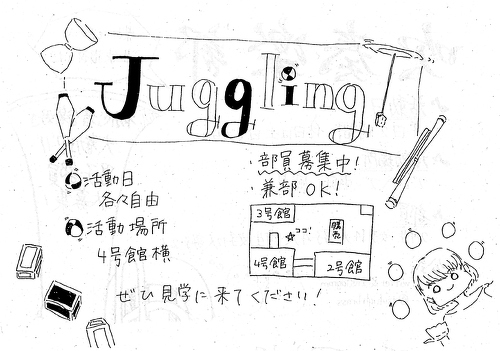 Juggling!
・部員募集中!
・兼部OK!
活動日
各々自由
活動場所
4号館横
3号館
ココ!
4号館
2号館
ぜひ見学に来てください!